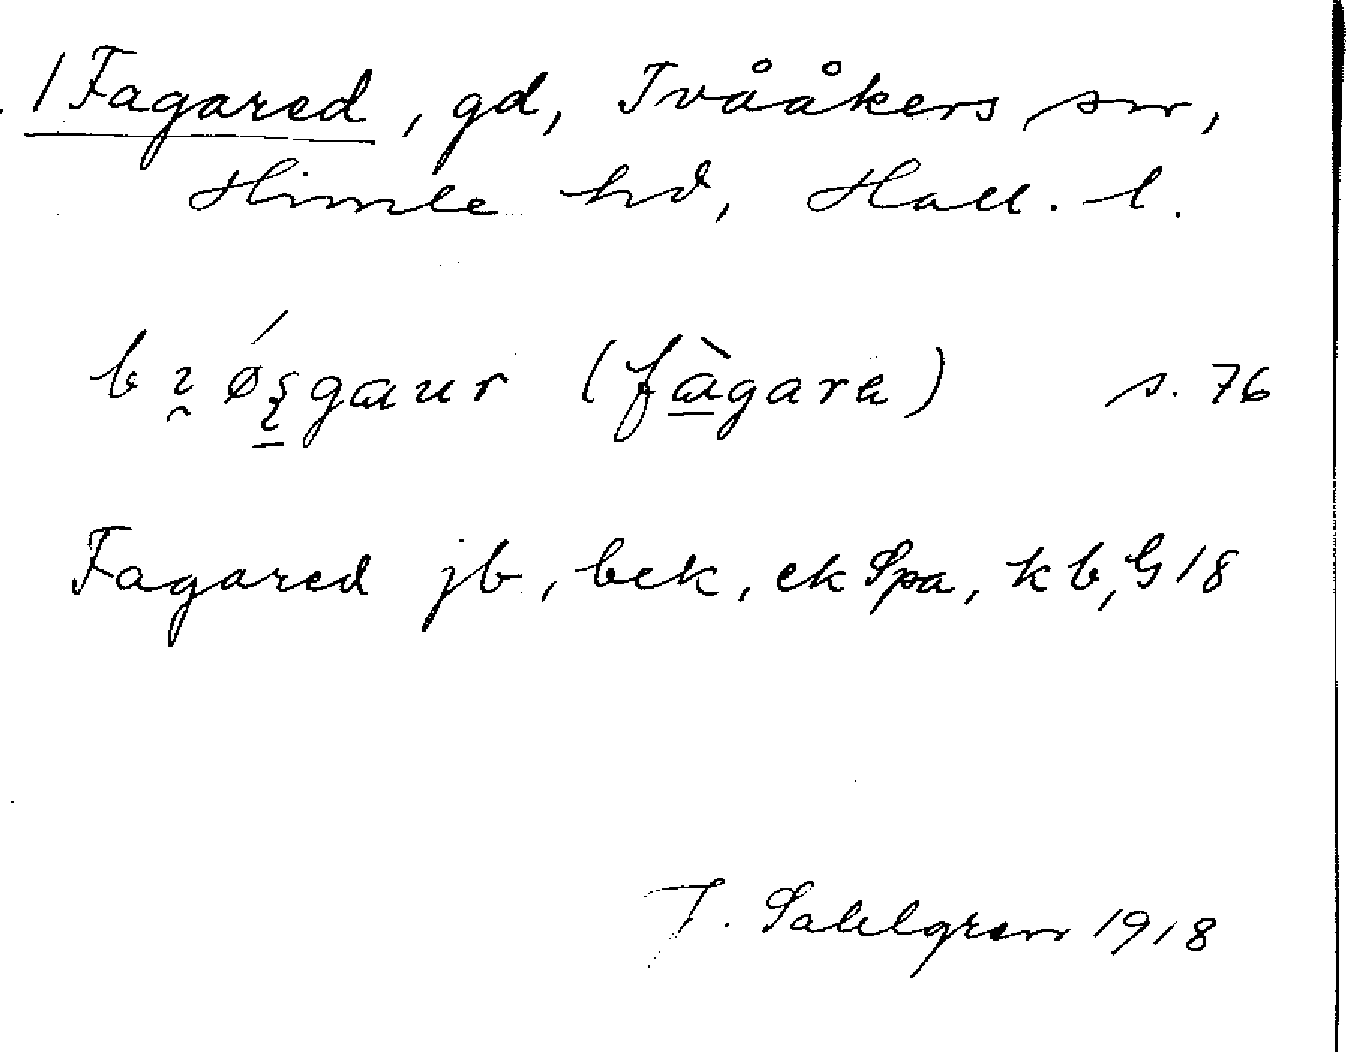 /Fagared, gd, Tvååkers sn,
Himle hd, Hall. l.
(fàgara) s. 76
Fagared jb, bek, ek Spa, kb, G 18
J. Sahlgren 1918